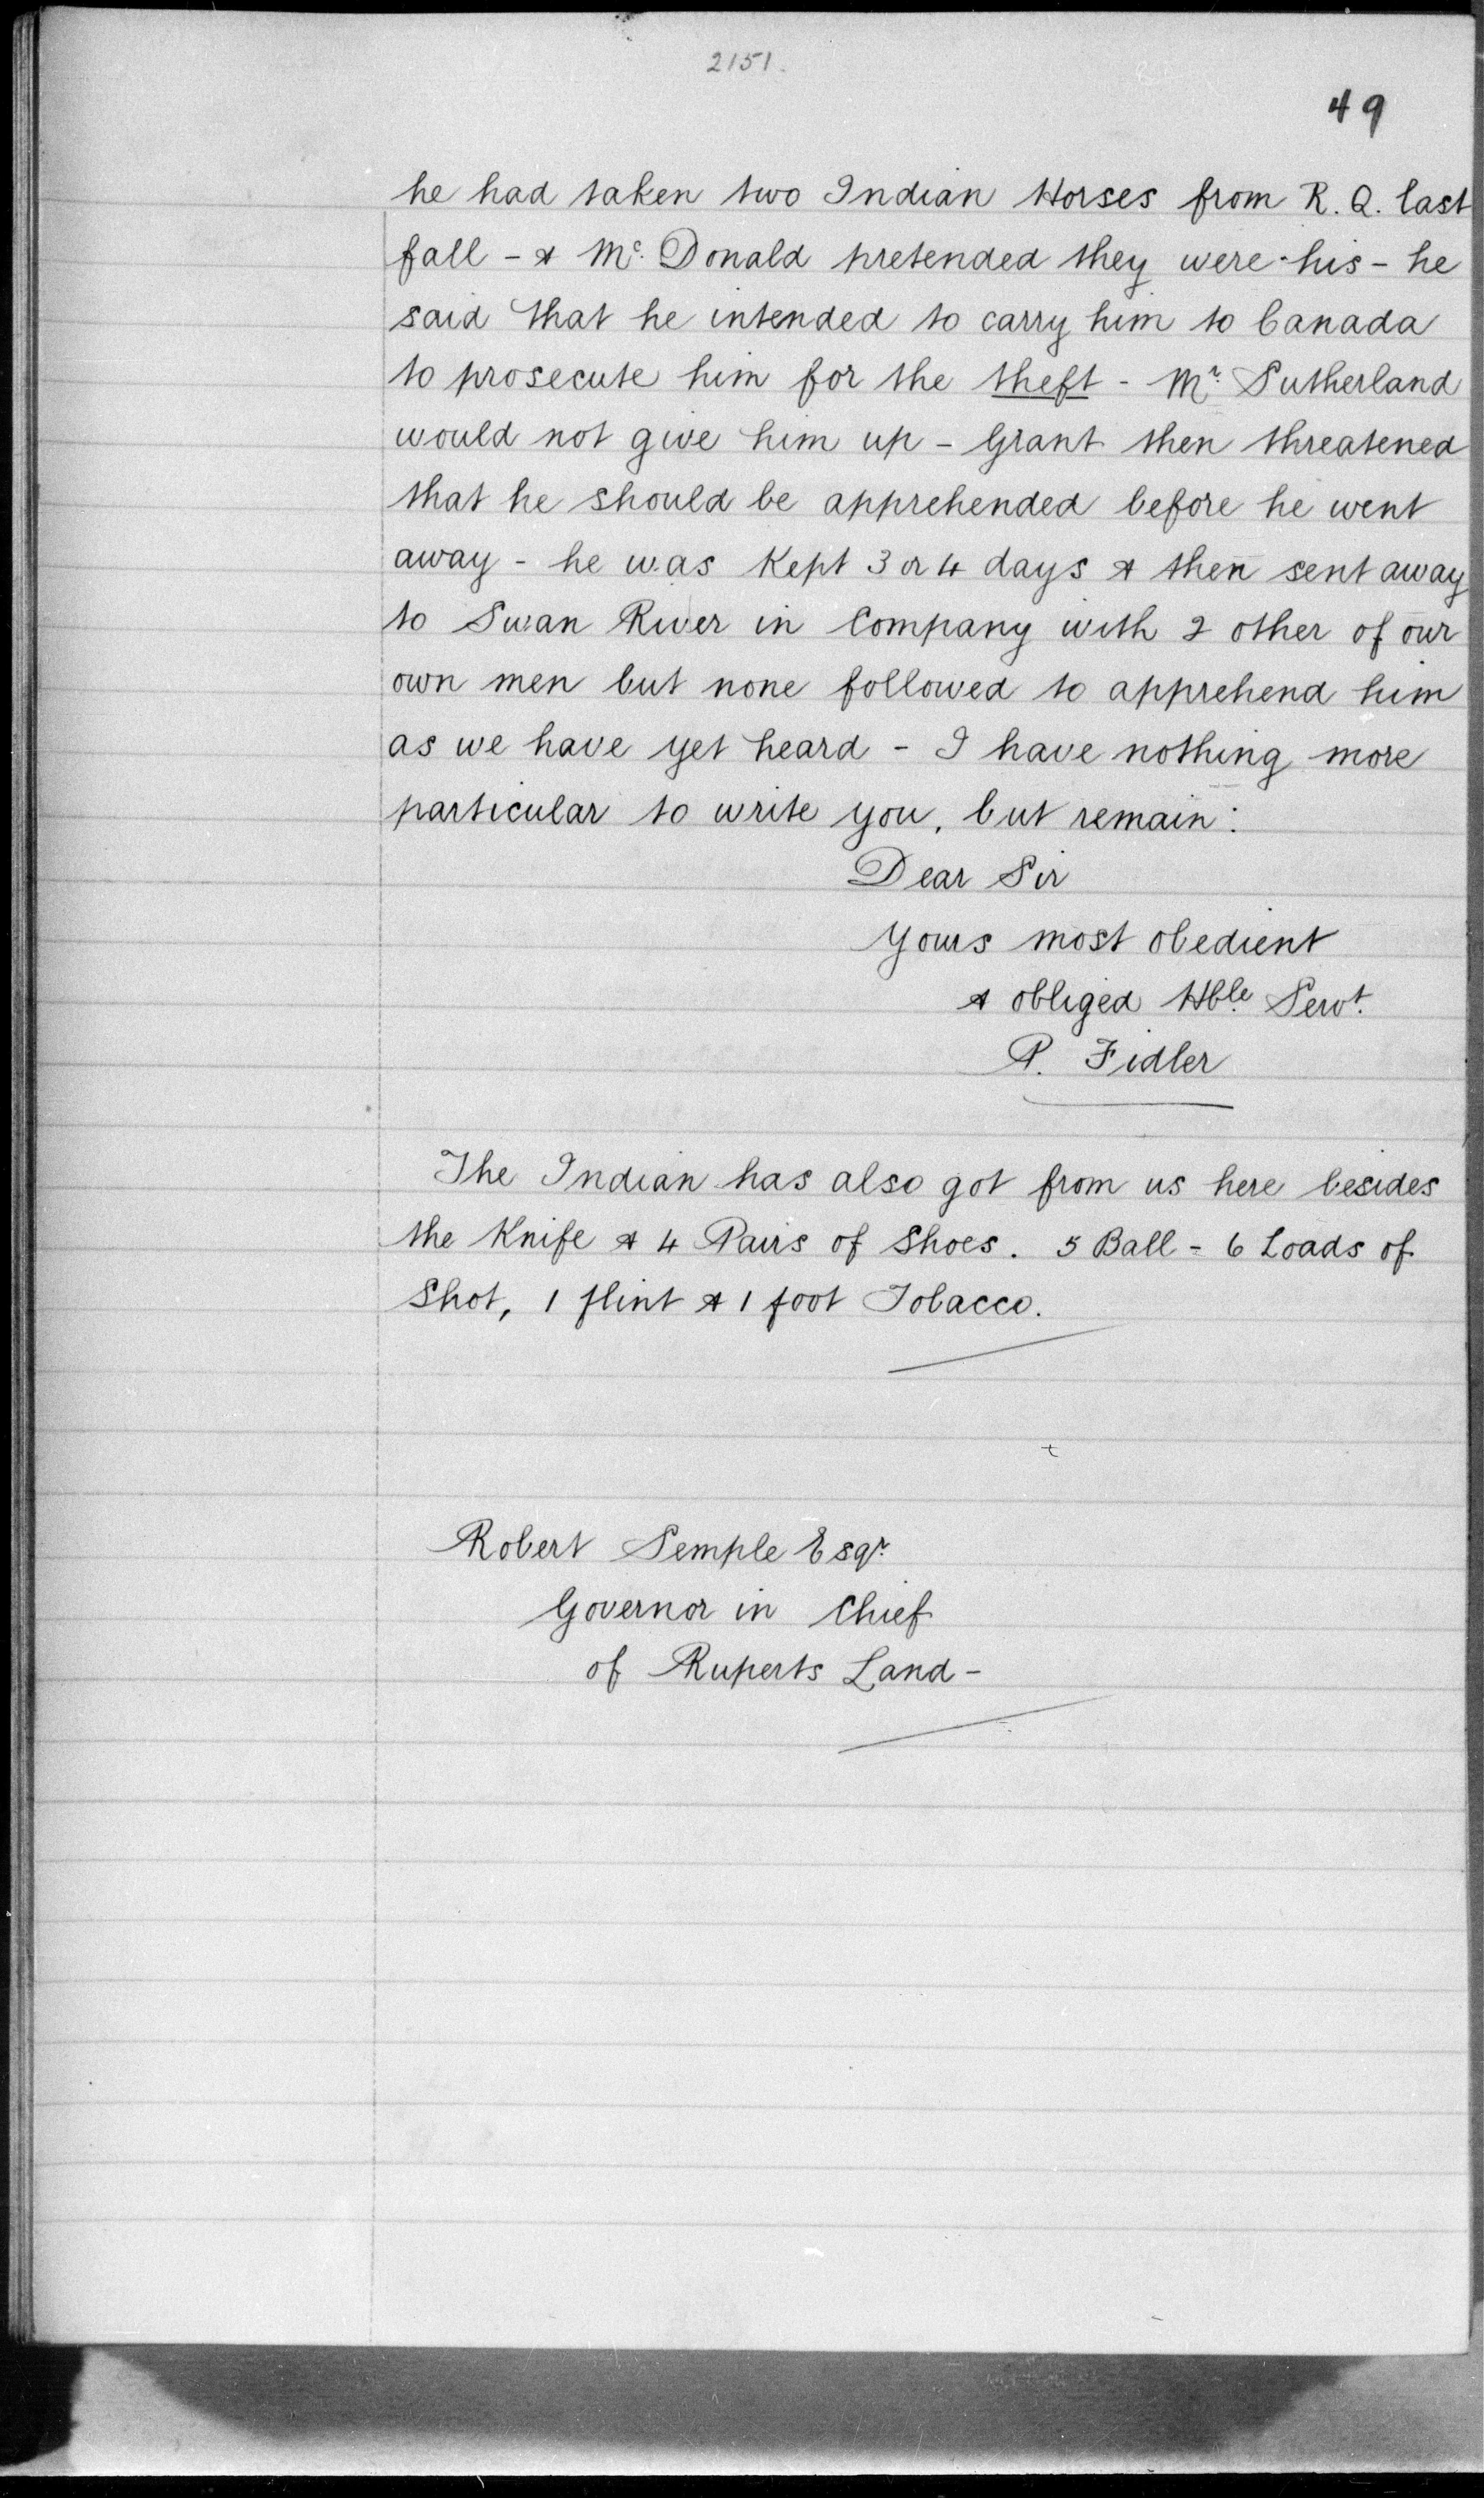 2151.
49
he had taken two Indian Horses from R. Q. last
fall - & Mc. Donald pretended they were his - he
said that he intended to carry him to Canada
to prosecute him for the theft - Mr. Sutherland
would not give him up - Grant then threatened
that he should be apprehended before he went
away - he was Kept 3 or 4 days & then sent away
to Swan River in Company with 2 other of our
own men but none followed to apprehend him
as we have yet heard - I have nothing more
particular to write you, but remain:
Dear Sir
Yours most obedient
& obliged Hble. Servt.
P. Fidler
The Indian has also got from us here besides
the Knife & 4 Pairs of Shoes. 5 Ball - 6 Loads of
Shot, 1 flint & 1 foot Tobacco.
Robert Semple Esqr.
Governor in Chief
of Ruperts Land -